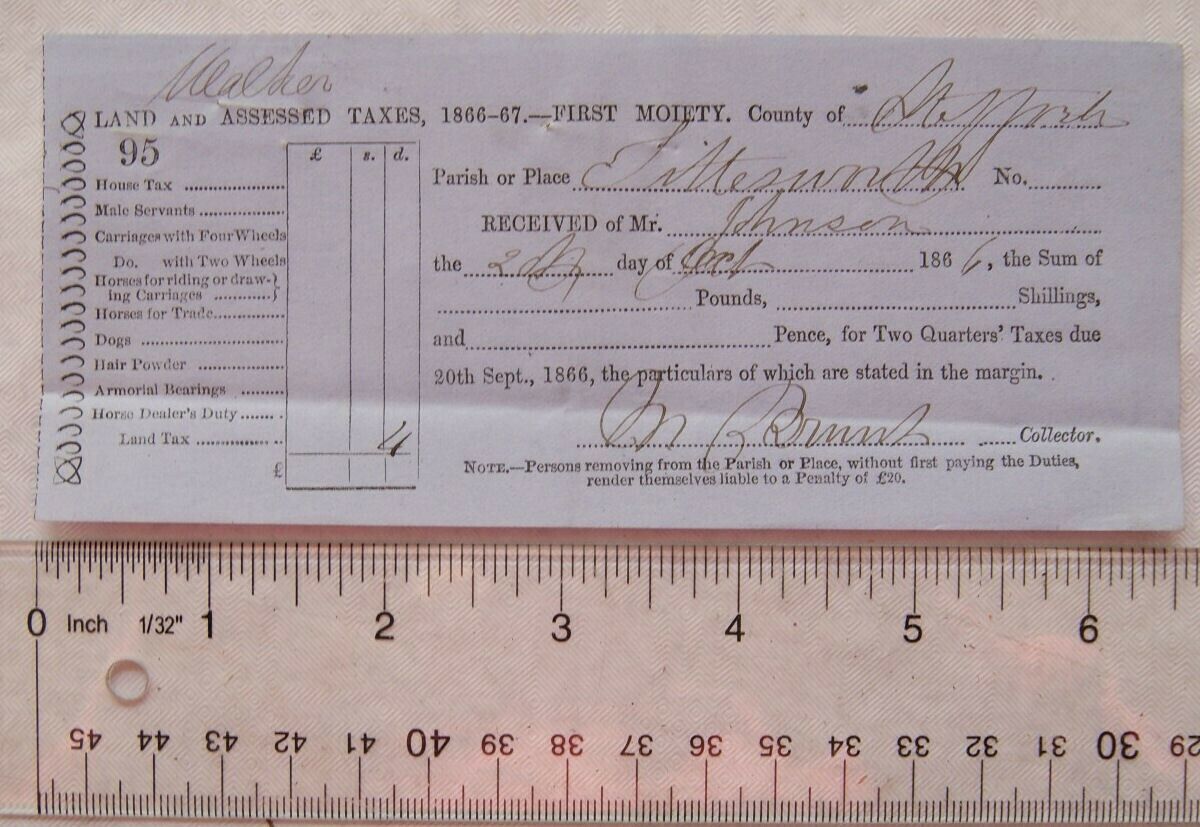 Walker
LAND AND ASSESSED TAXES, 1866-67.—FIRST MOIETY. County of Stafford
95
£ s. d.
House Tax
Male Servants
Carriages with Four Wheels
Do. with Two Wheels
Horses for riding or draw-}
ing Carriages }
Horses for Trade
Dogs
Hair Powder
Armorial Bearings
Horse Dealer's Duty
Land Tax 4
£
Parish or Place Tittesworth No.
RECEIVED of Mr. Johnson
the 2nd day of Oct 1866, the Sum of
Pounds, Shillings,
and Pence, for Two Quarters' Taxes due
20th Sept., 1866, the particulars of which are stated in the margin.
Brunt Collector.
NOTE.—Persons removing from the Parish or Place, without first paying the Duties,
render themselves liable to a Penalty of £20.
0 Inch 1/32" 1 2 3 4 5 6
45 44 43 42 41 40 39 38 37 36 35 34 33 32 31 30 29